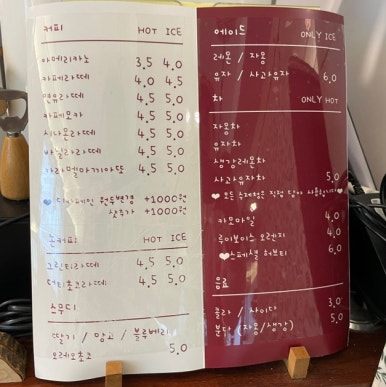 커피 HOT ICE
아메리카노 3.5 4.0
카페라떼 4.0 4.5
연유라떼 4.5 5.0
카페모카 4.5 5.0
시나몬라떼 4.5 5.0
바닐라라떼 4.5 5.0
카라멜마끼아또 4.5 5.0
디카페인 원두변경 +1000원
샷추가 +1000원
논커피 HOT ICE
그린티라떼 4.5 5.0
더티초코라떼 4.5 5.0
스무디
딸기 / 망고 / 블루베리
오레오초코 5.0
에이드 ONLY ICE
레몬 / 자몽
유자 / 사과유자 6.0
차 ONLY HOT
자몽차
유자차
생강레몬차
사과유자차 5.0
모든 수제청은 직접 담아 사용합니다
카모마일 4.0
루이보이스 오렌지 4.0
스페셜 허브티 6.0
음료
콜라 / 사이다 3.0
분다 (자몽/생강) 5.0